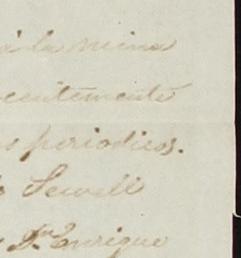 á la mina
centemente
s periodicos.
Sewell
Dn Enrique